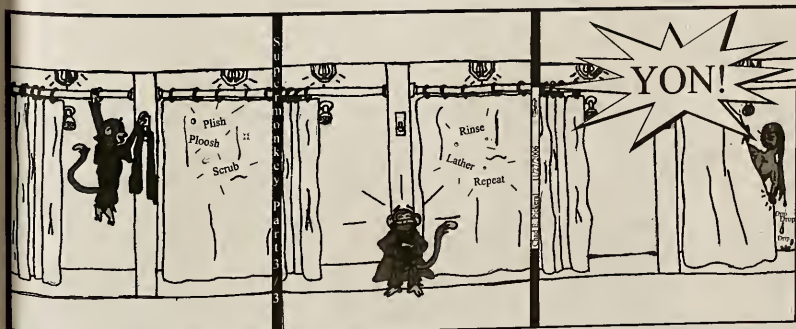 Plish
Ploosh
Scrub
Supermonkey Part 3/3
Rinse
Lather
Repeat
11/27/2006
YON!
Drop